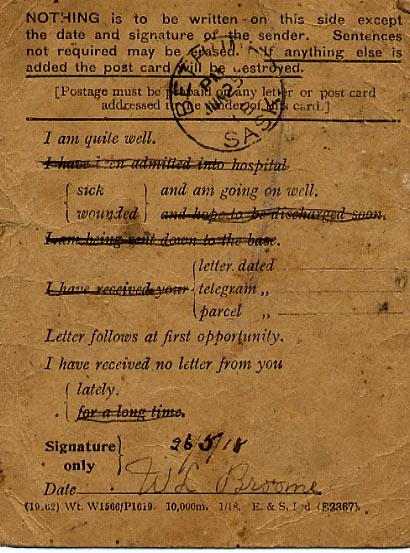 NOTHING is to be written on this side except
the date and signature of the sender. Sentences
not required may be erased. If anything else is
added the post card will be destroyed.
[Postage must be prepaid on any letter or post card
addressed to the sender of this card.]
SASK
PM
I am quite well.
I have been admitted into hospital
sick
and am going on well.
wounded
and hope to be discharged soon.
I am being sent down to the base.
letter dated
I have received your
telegram „
parcel „
Letter follows at first opportunity.
I have received no letter from you
lately.
for a long time.
Signature
only
26/5/18
Date
W L Broome
(19.62) Wt. W1566/P1619. 10,000m. 1/18. E. & S. Ltd (E2367).